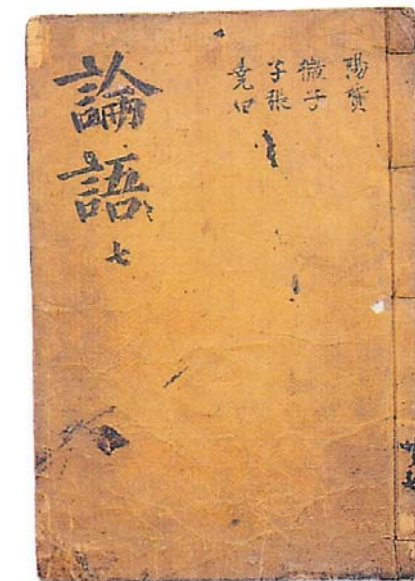 陽貨
微子
子張
堯曰
論語
七